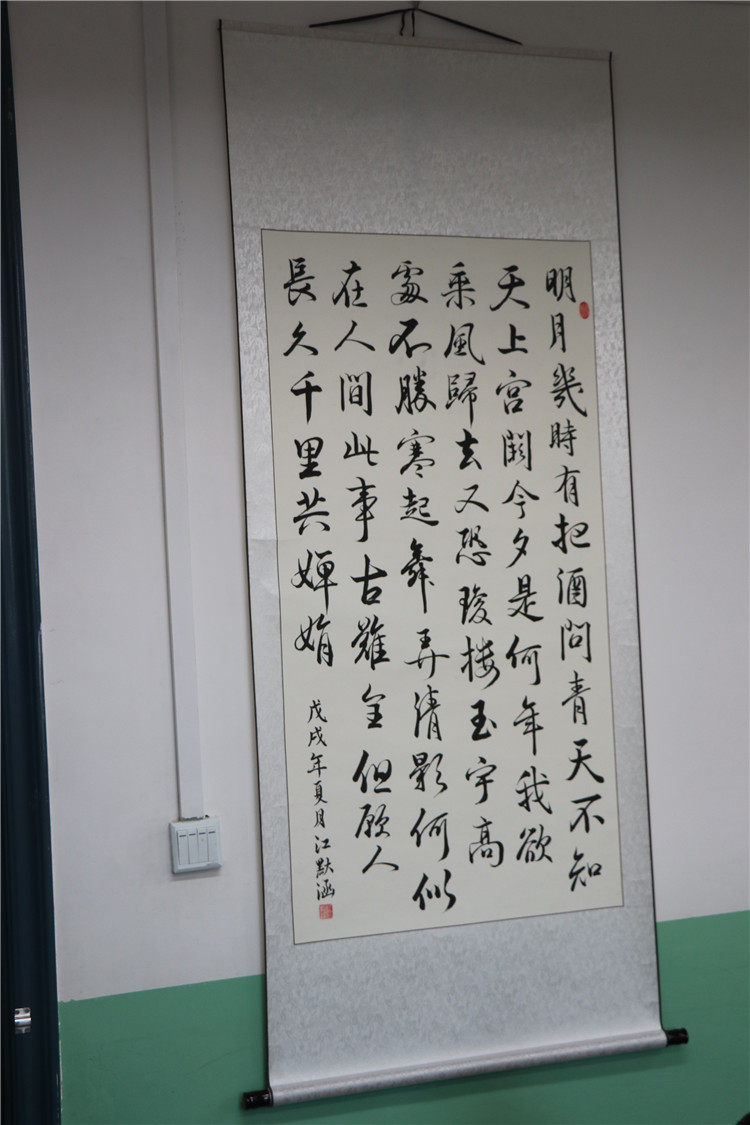 明月幾時有把酒問青天不知
天上宮闕今夕是何年我欲
乘風歸去又恐瓊楼玉宇高
處不勝寒起舞弄清影何似
在人間此事古難全但願人
長久千里共嬋娟
戊戌年夏月江默涵